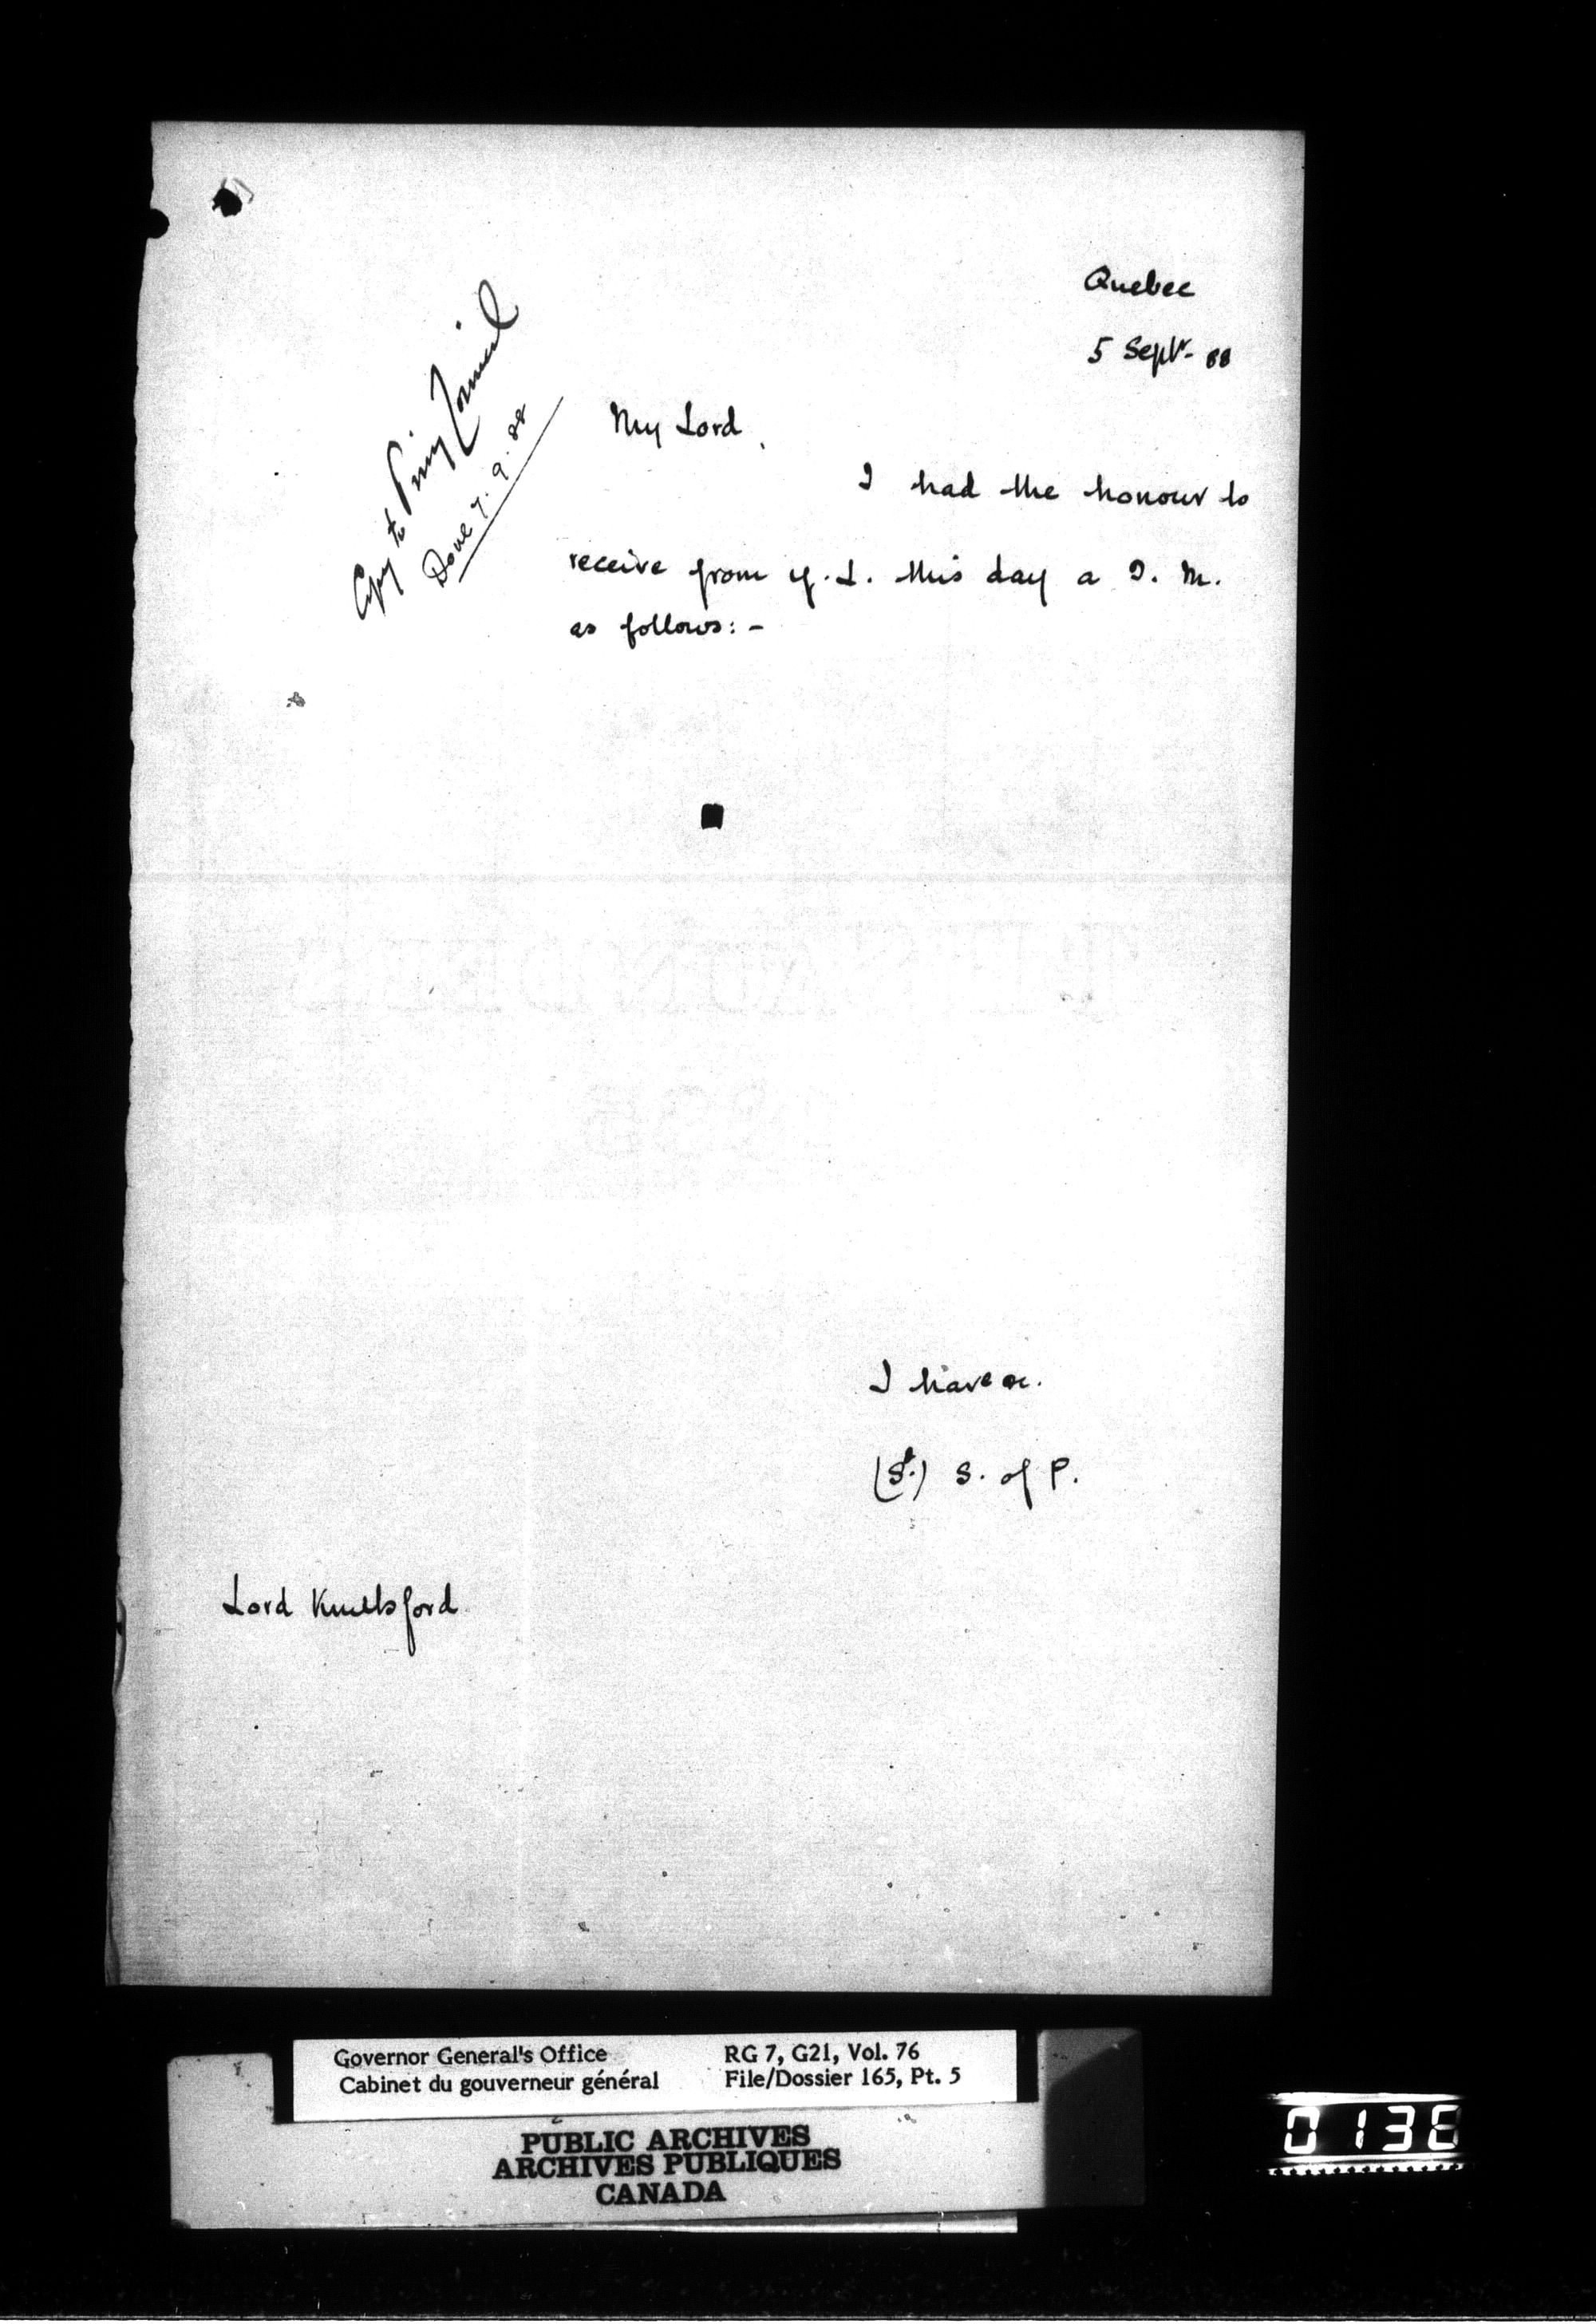 Quebec
5 Sept. 88
Copy to Privy Council
Done 7.9.88
My Lord,
I had the honour to
receive from y. L. this day a T. M.
as follows:-
I have &c.
(Sd.) S. of P.
Lord Knutsford
Governor General's Office
Cabinet du gouverneur général
RG 7, G21, Vol. 76
File/Dossier 165, Pt. 5
PUBLIC ARCHIVES
ARCHIVES PUBLIQUES
CANADA